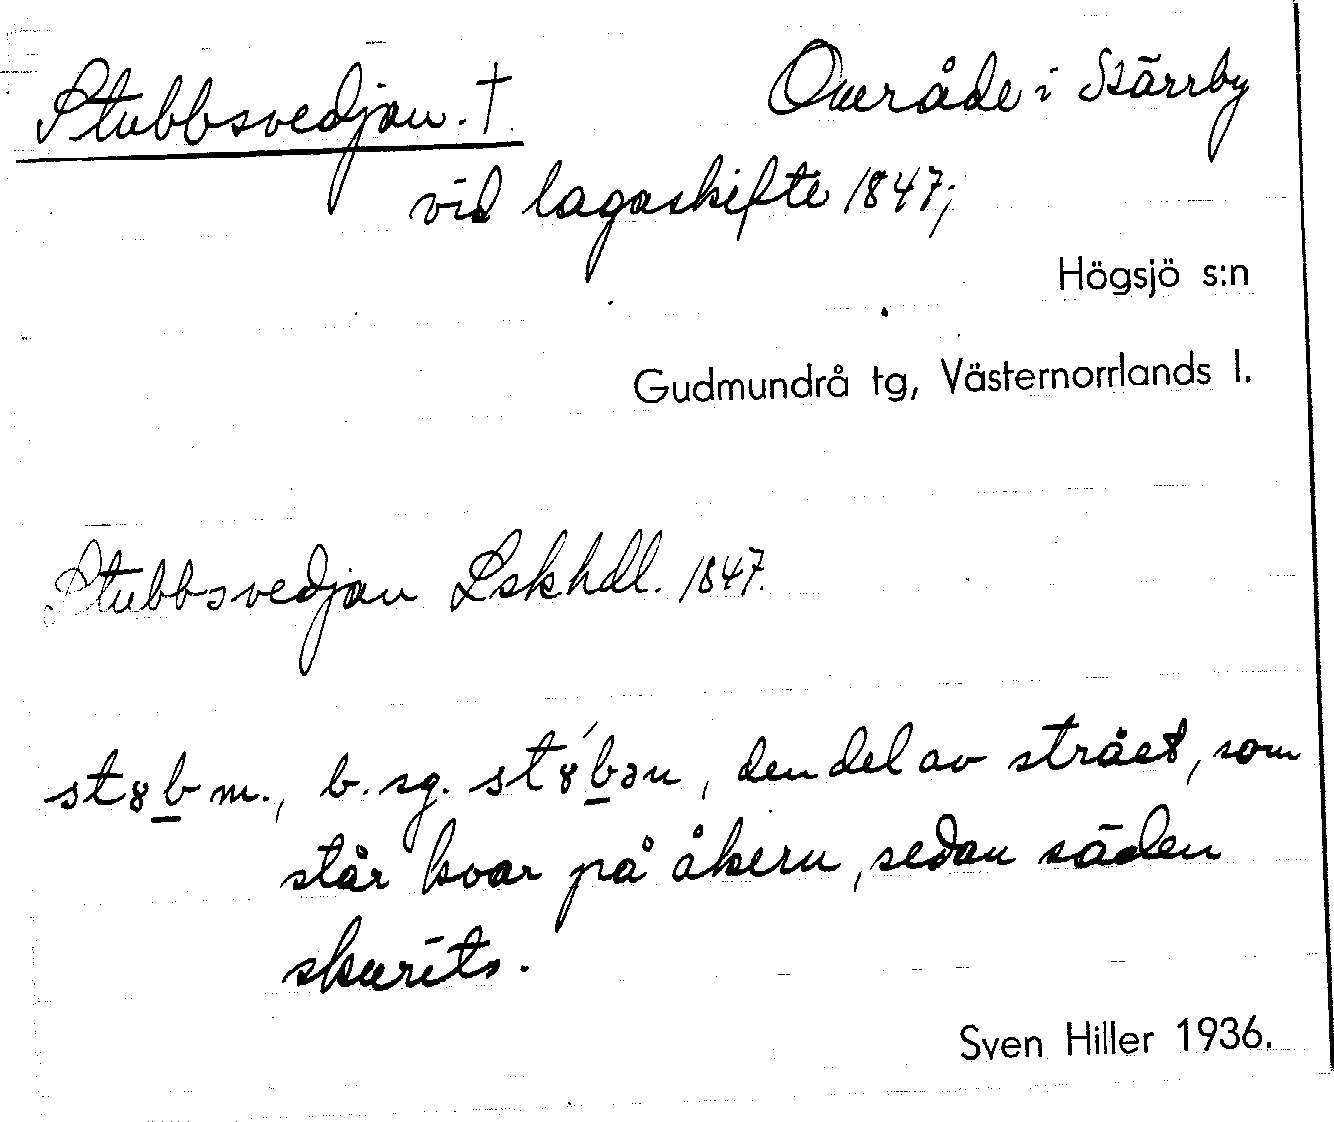 Stubbsvedjan. † Område i Stärrby
vid lagaskifte 1847;
Högsjö s:n
Gudmundrå tg, Västernorrlands l.
Stubbsvedjan Lskhdl. 1847.
st8b m., b. sg. st8́bən, den del av strået, som
står kvar på åkern, sedan säden
skurits.
Sven Hiller 1936.